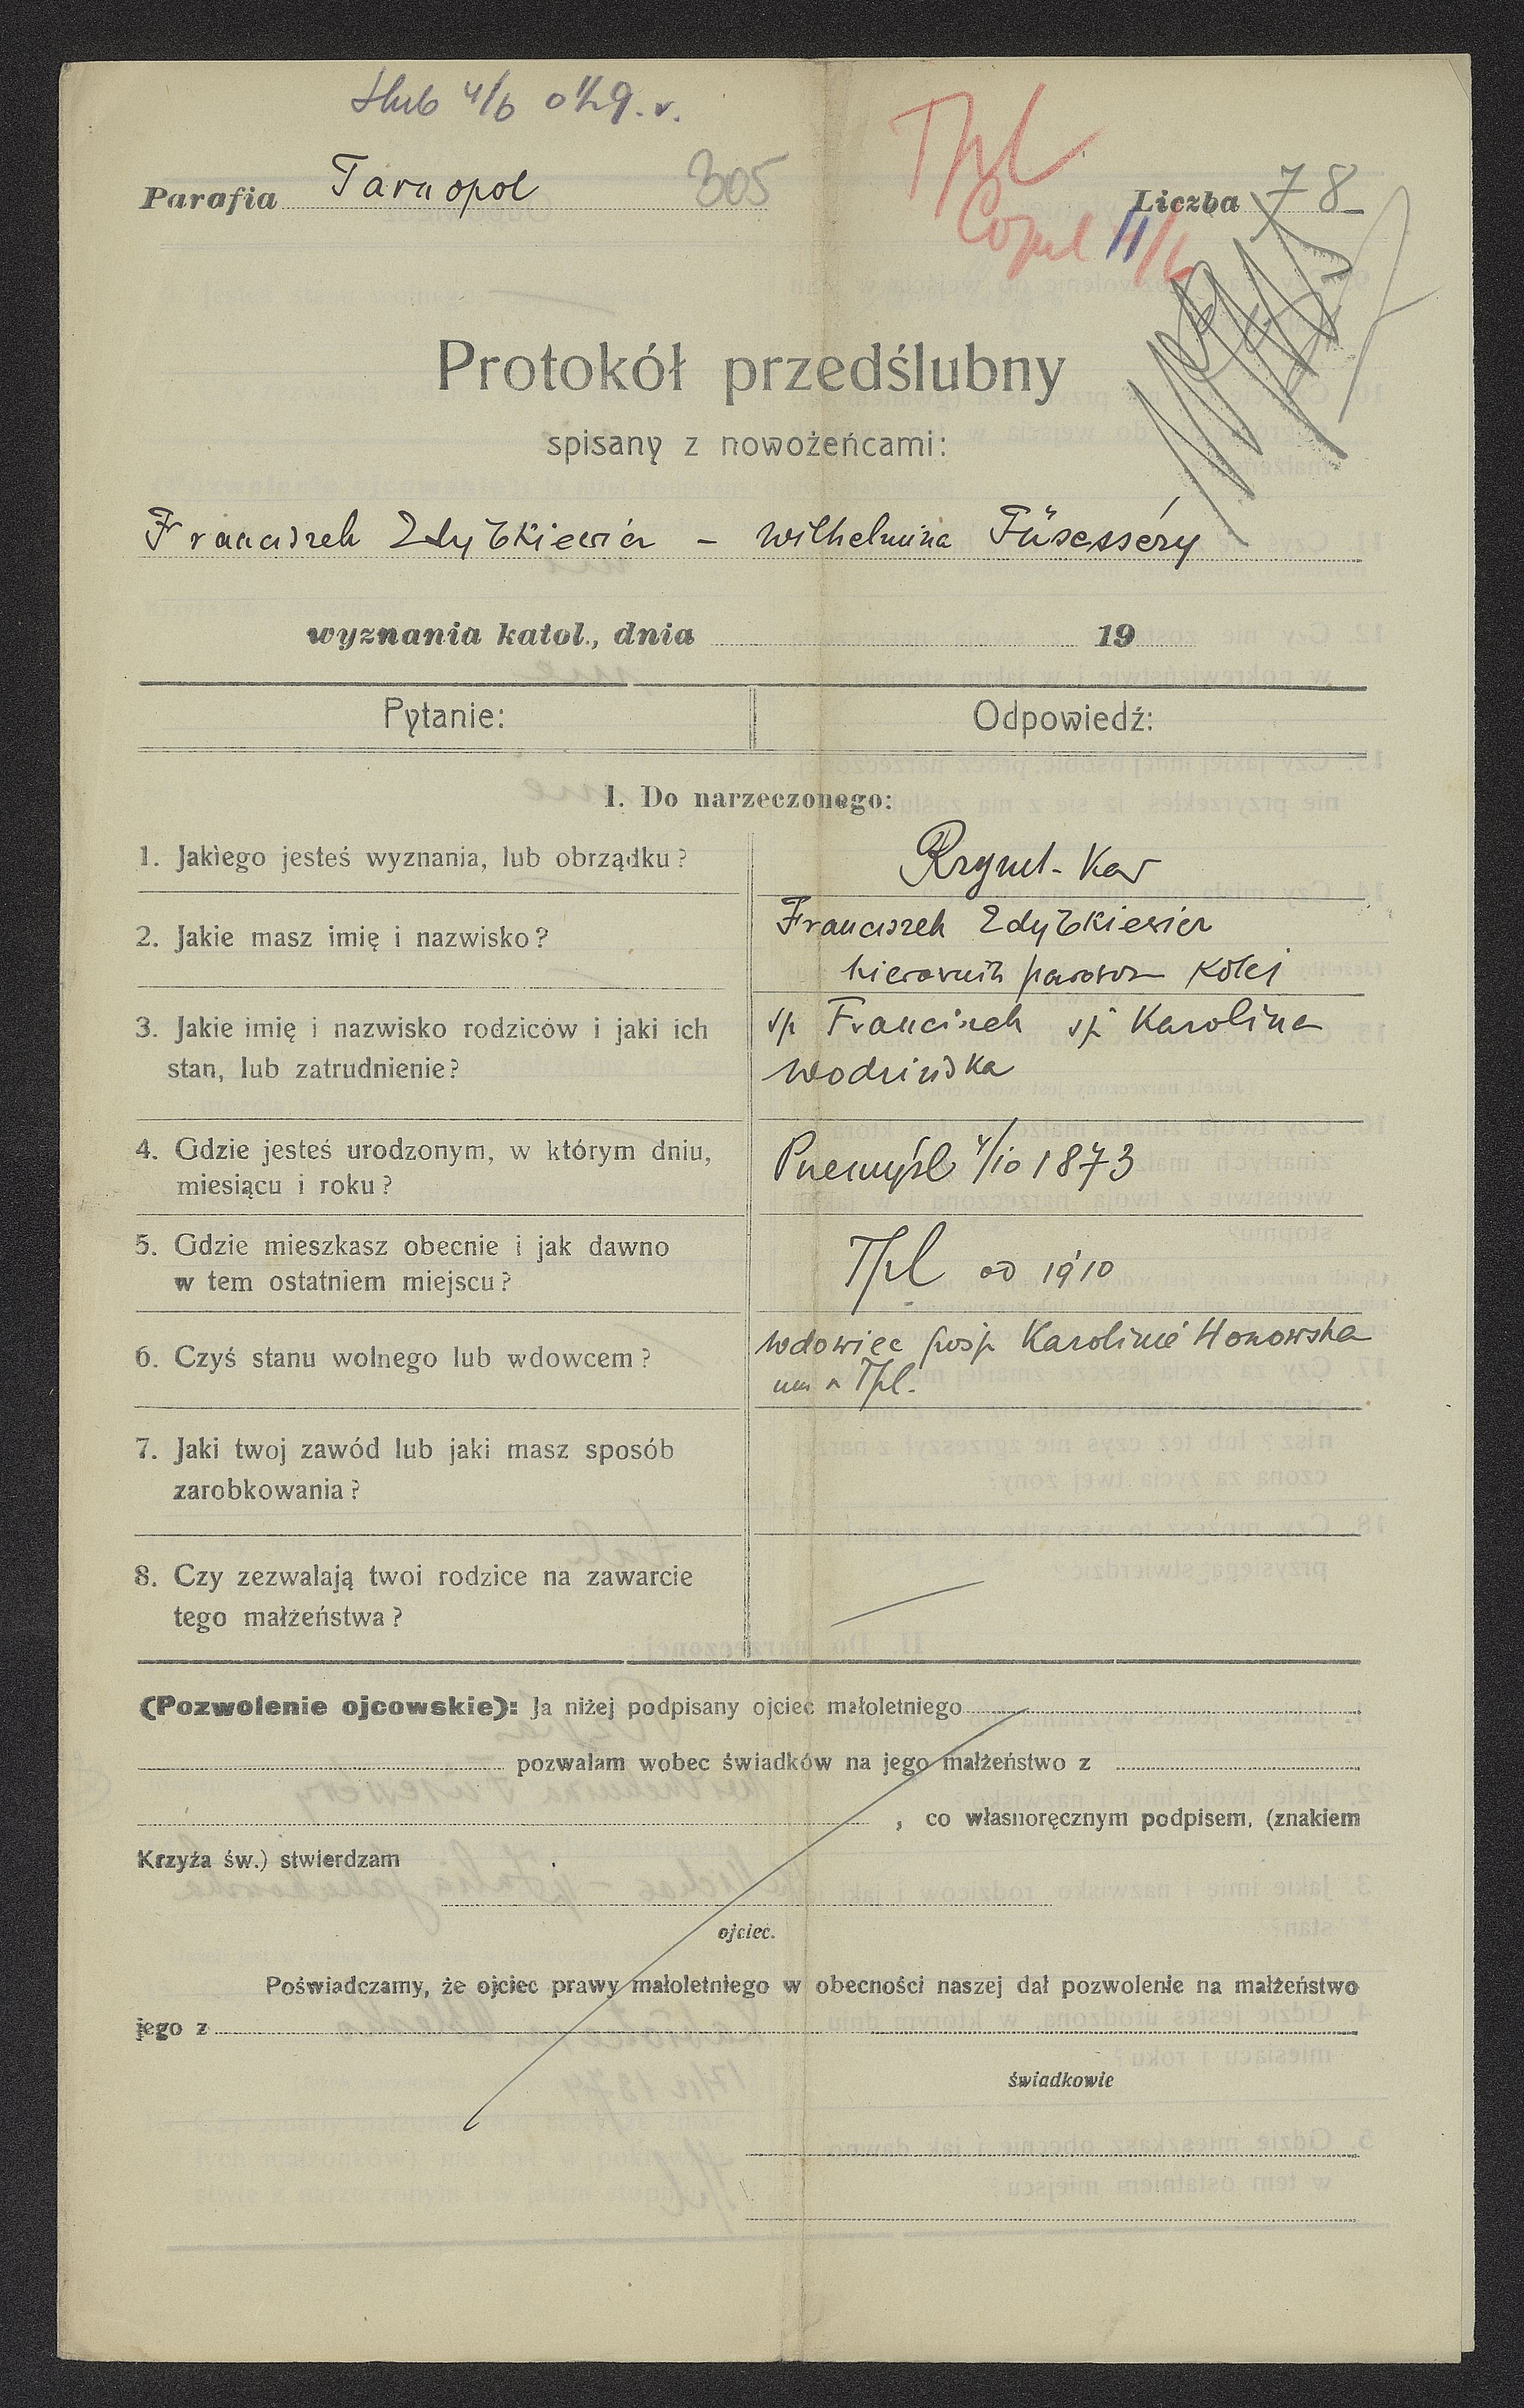 Ślub 4/6 o ½9. r.
Parafia Tarnopol 305 Liczba 78
Tpl
Copul 4/6
Protokół przedślubny
spisany z nowożeńcami:
Franciszek Zdybkiewicz – Wilhelmina Füsessery
wyznania katol., dnia 19
Pytanie: Odpowiedź:
I. Do narzeczonego:
1. Jakiego jesteś wyznania, lub obrządku? Rzymt-Kat
2. Jakie masz imię i nazwisko? Franciszek Zdybkiewicz
kierownik parowoz Kolei
3. Jakie imię i nazwisko rodziców i jaki ich sp Franciszek sp Karolina
stan, lub zatrudnienie? Wodzińska
4. Gdzie jesteś urodzonym, w którym dniu,
miesiącu i roku? Przemyśl 4/10 1873
5. Gdzie mieszkasz obecnie i jak dawno
w tem ostatniem miejscu? Tpl od 1910
6. Czyś stanu wolnego lub wdowcem? wdowiec po sp Karolinie Honowska
um w Tpl.
7. Jaki twoj zawód lub jaki masz sposób
zarobkowania?
8. Czy zezwalają twoi rodzice na zawarcie
tego małżeństwa?
(Pozwolenie ojcowskie): Ja niżej podpisany ojciec małoletniego
pozwalam wobec świadków na jego małżeństwo z
, co własnoręcznym podpisem, (znakiem
Krzyża św.) stwierdzam
ojciec.
Poświadczamy, że ojciec prawy małoletniego w obecności naszej dał pozwolenie na małżeństwo
jego z
świadkowie